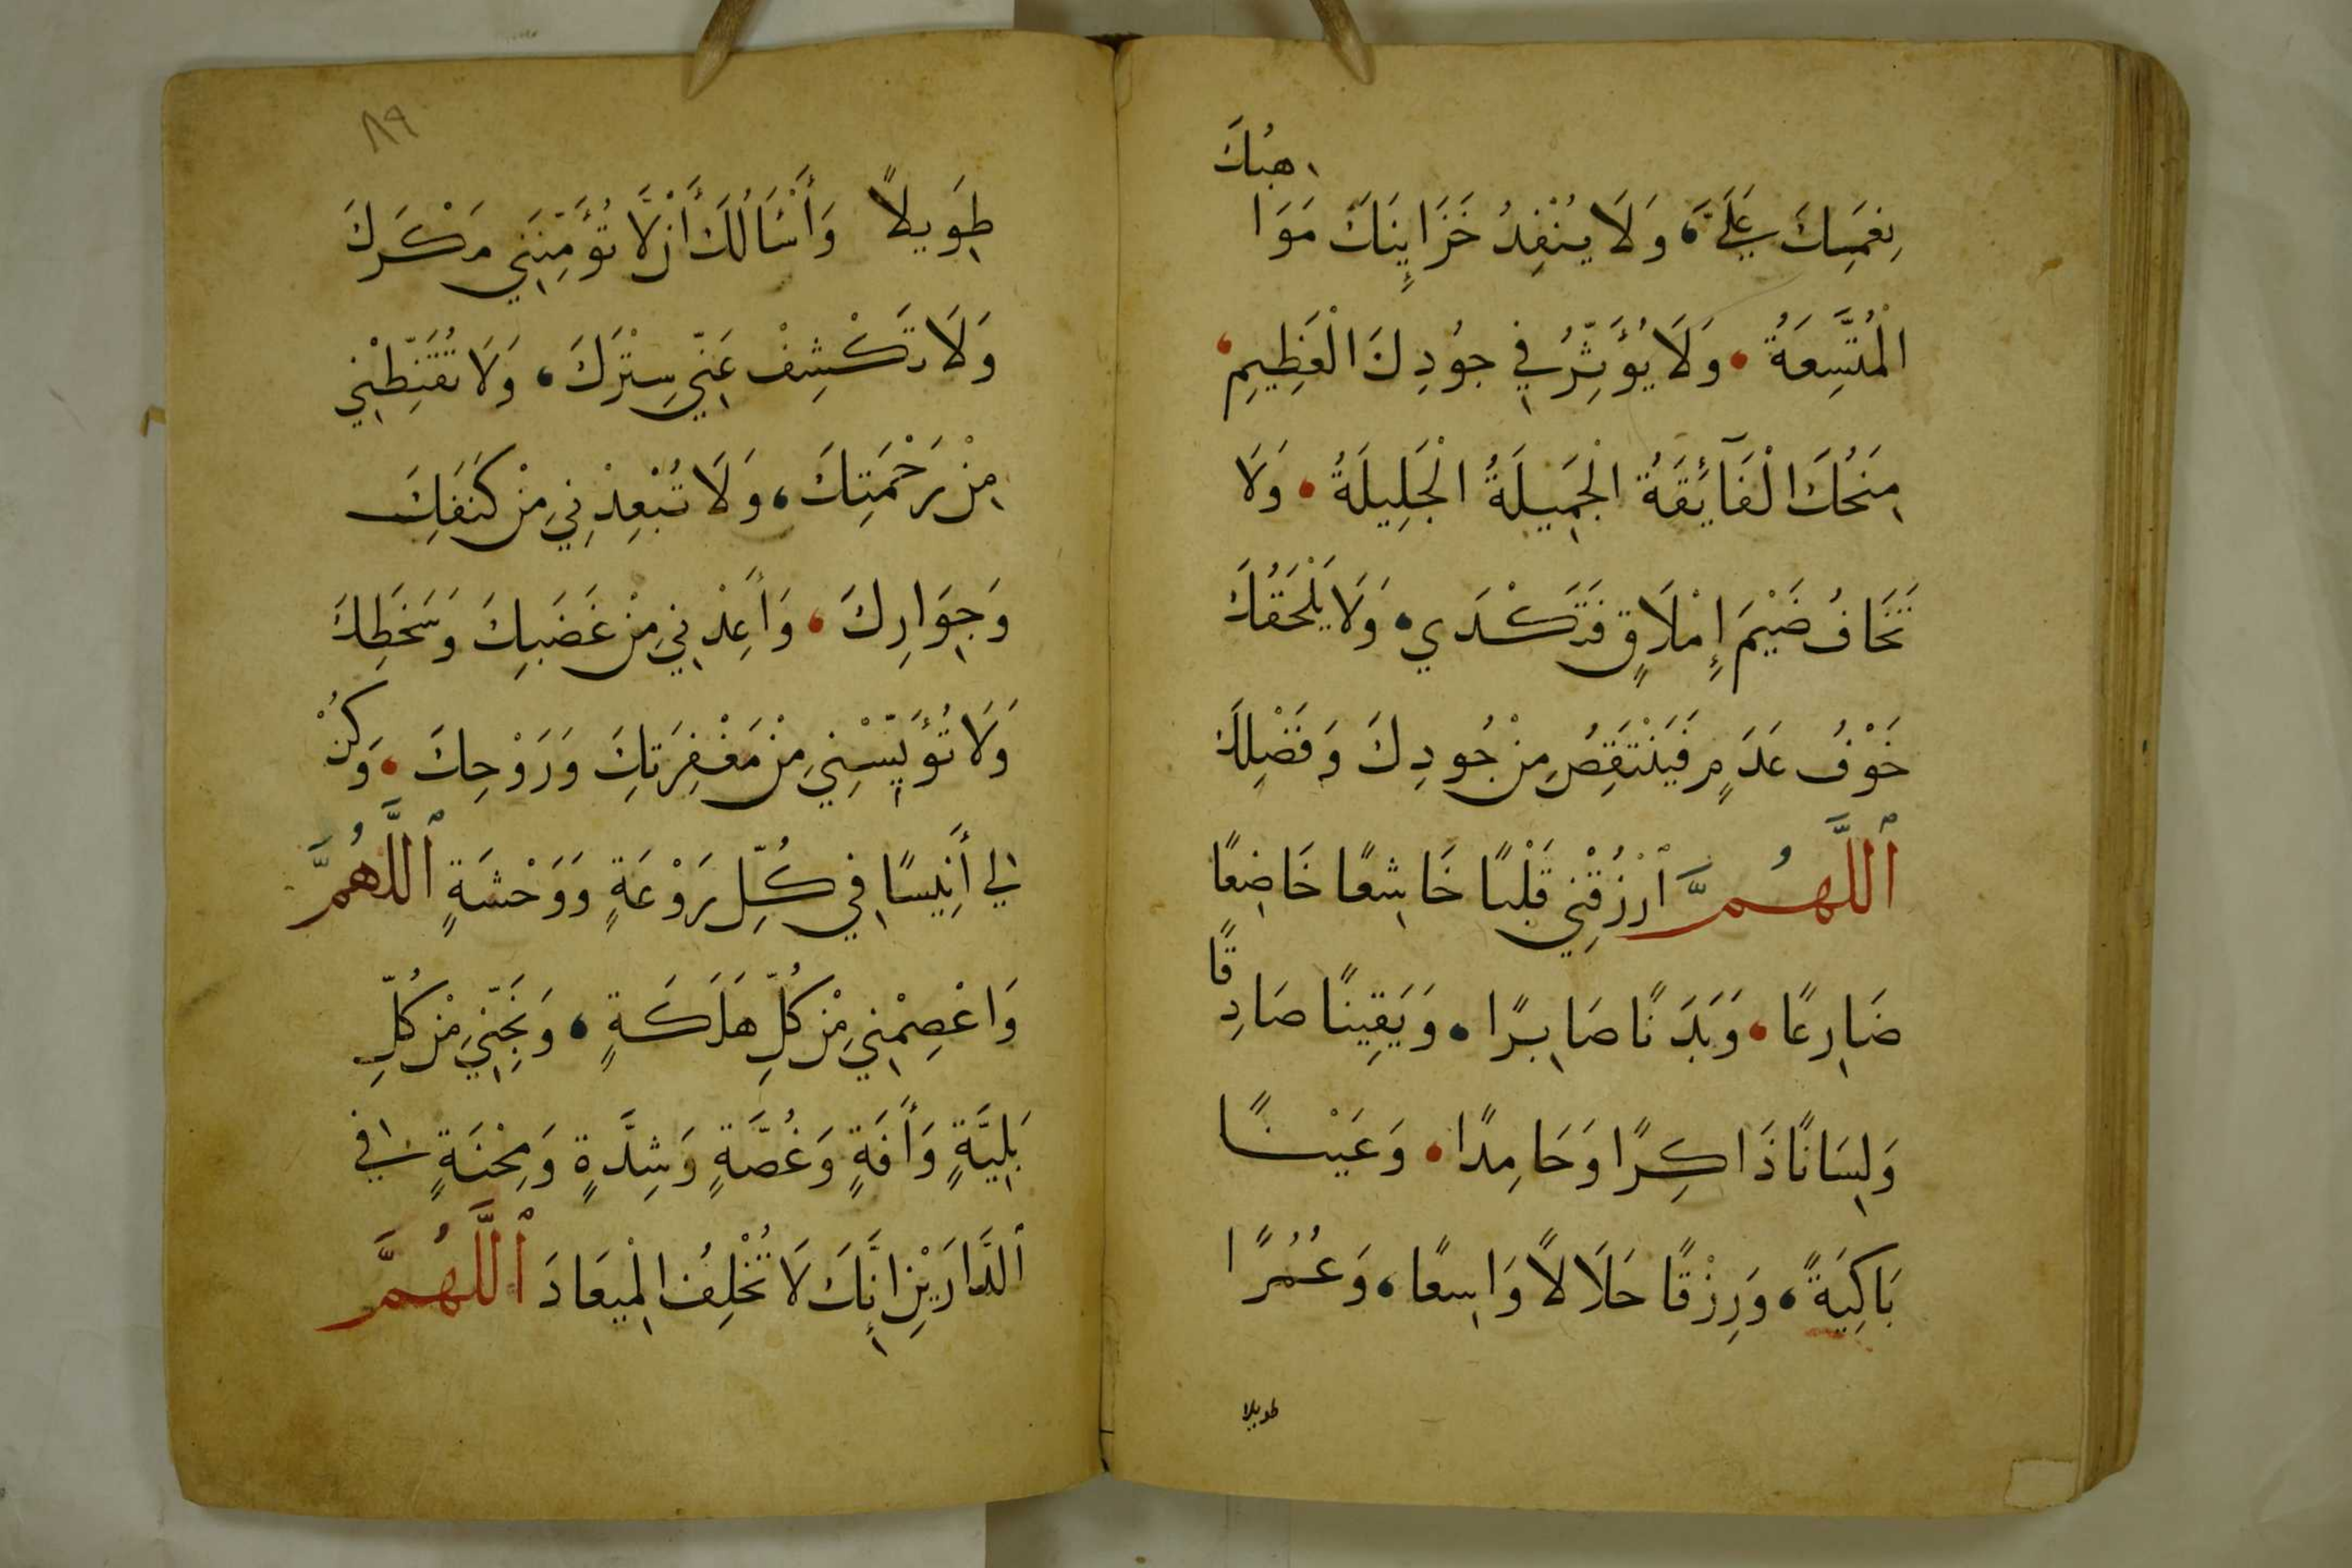 نِعَمِكَ عَلَيَّ، وَلَا يُنْفِدُ خَزَايِنَكَ مَوَاهِبُكَ
الْمُتَّسِعَةُ • وَلَا يُؤَثِّرُ فِي جُودِكَ الْعَظِيمِ،
مِنَحُكَ الْفَآئِقَةُ الْجَمِيلَةُ الْجَلِيلَةُ • وَلَا
تَخَافُ ضَيْمَ إِمْلَاقٍ فَتَكْدَي • وَلَا يَلْحَقُكَ
خَوْفُ عَدَمٍ فَيَنْتَقِصُ مِنْ جُودِكَ وَفَضْلِكَ
ٱللَّهُمَّ ٱرْزُقْنِي قَلْبًا خَاشِعًا خَاضِعًا
ضَارِعًا • وَبَدَنًا صَابِرًا • وَيَقِينًا صَادِقًا
وَلِسَانًا ذَاكِرًا وَحَامِدًا • وَعَيْنًا
بَاكِيَةً، وَرِزْقًا حَلَالًا وَاسِعًا، وَعُمُرًا
طويلا
٨٩
طَوِيلًا وَأَسْأَلُكَ أَنْ لَّا تُؤَمِّنَنِي مَكْرَكَ
وَلَا تَكْشِفْ عَنِّي سِتْرَكَ، وَلَا تُقَنِّطْنِي
مِنْ رَحْمَتِكَ، وَلَا تُبْعِدْنِي مِنْ كَنَفِكَ
وَجِوَارِكَ، وَأَعِذْنِي مِنْ غَضَبِكَ وَسَخَطِكَ
وَلَا تُؤَيِّسْنِي مِنْ مَغْفِرَتِكَ وَرَوْحِكَ • وَكُنْ
لِي أَنِيسًا فِي كُلِّ رَوْعَةٍ وَوَحْشَةٍ ٱللَّهُمَّ
وَاعْصِمْنِي مِنْ كُلِّ هَلَكَةٍ، وَنَجِّنِي مِنْ كُلِّ
بَلِيَّةٍ وَأَفَةٍ وَغُصَّةٍ وَشِدَّةٍ وَمِحْنَةٍ فِي
ٱلدَّارَيْنِ إِنَّكَ لَا تُخْلِفُ الْمِيعَادَ ٱللَّهُمَّ